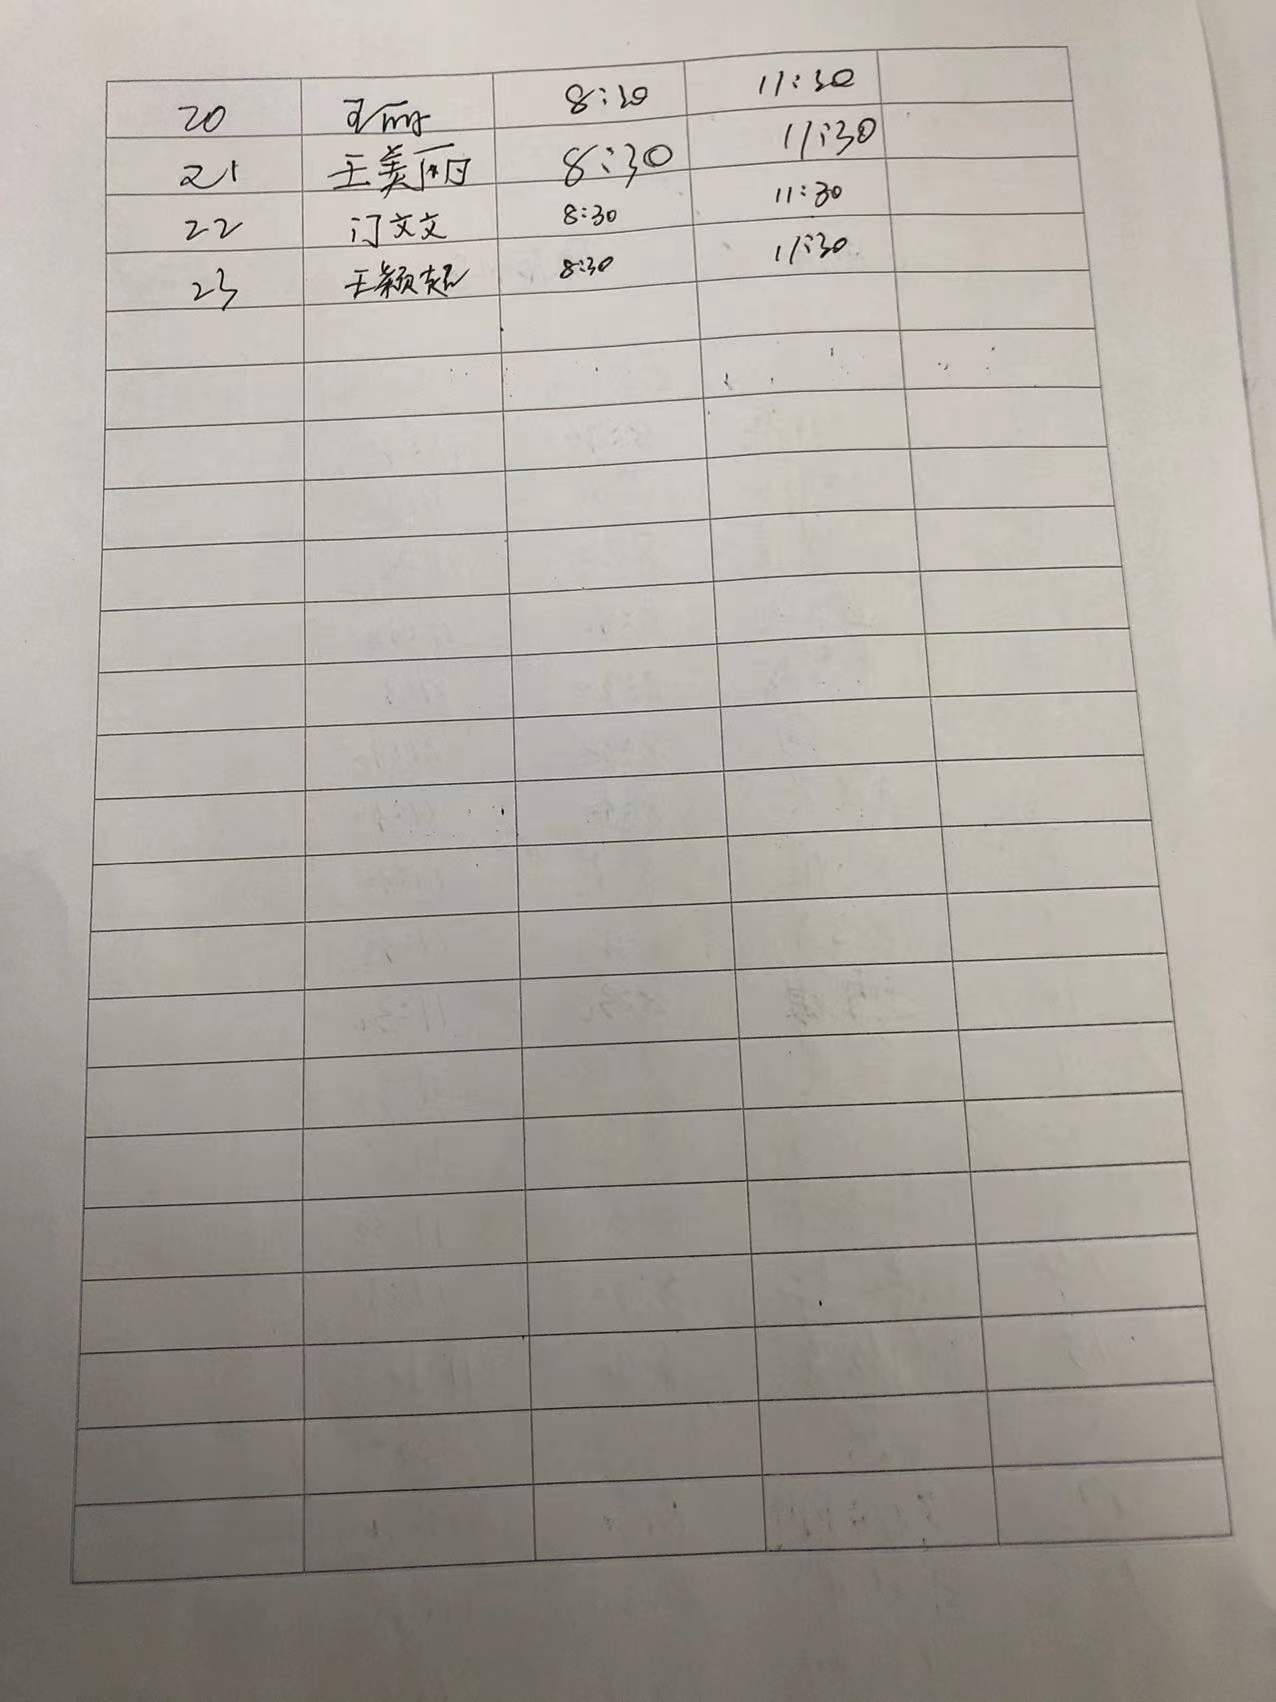 20 王丽 8:30 11:30
21 王美丽 8:30 11:30
22 门文文 8:30 11:30
23 王颖超 8:30 11:30